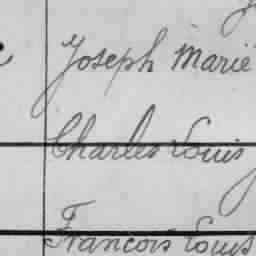 Joseph Marie
Charles Louis
François Louis